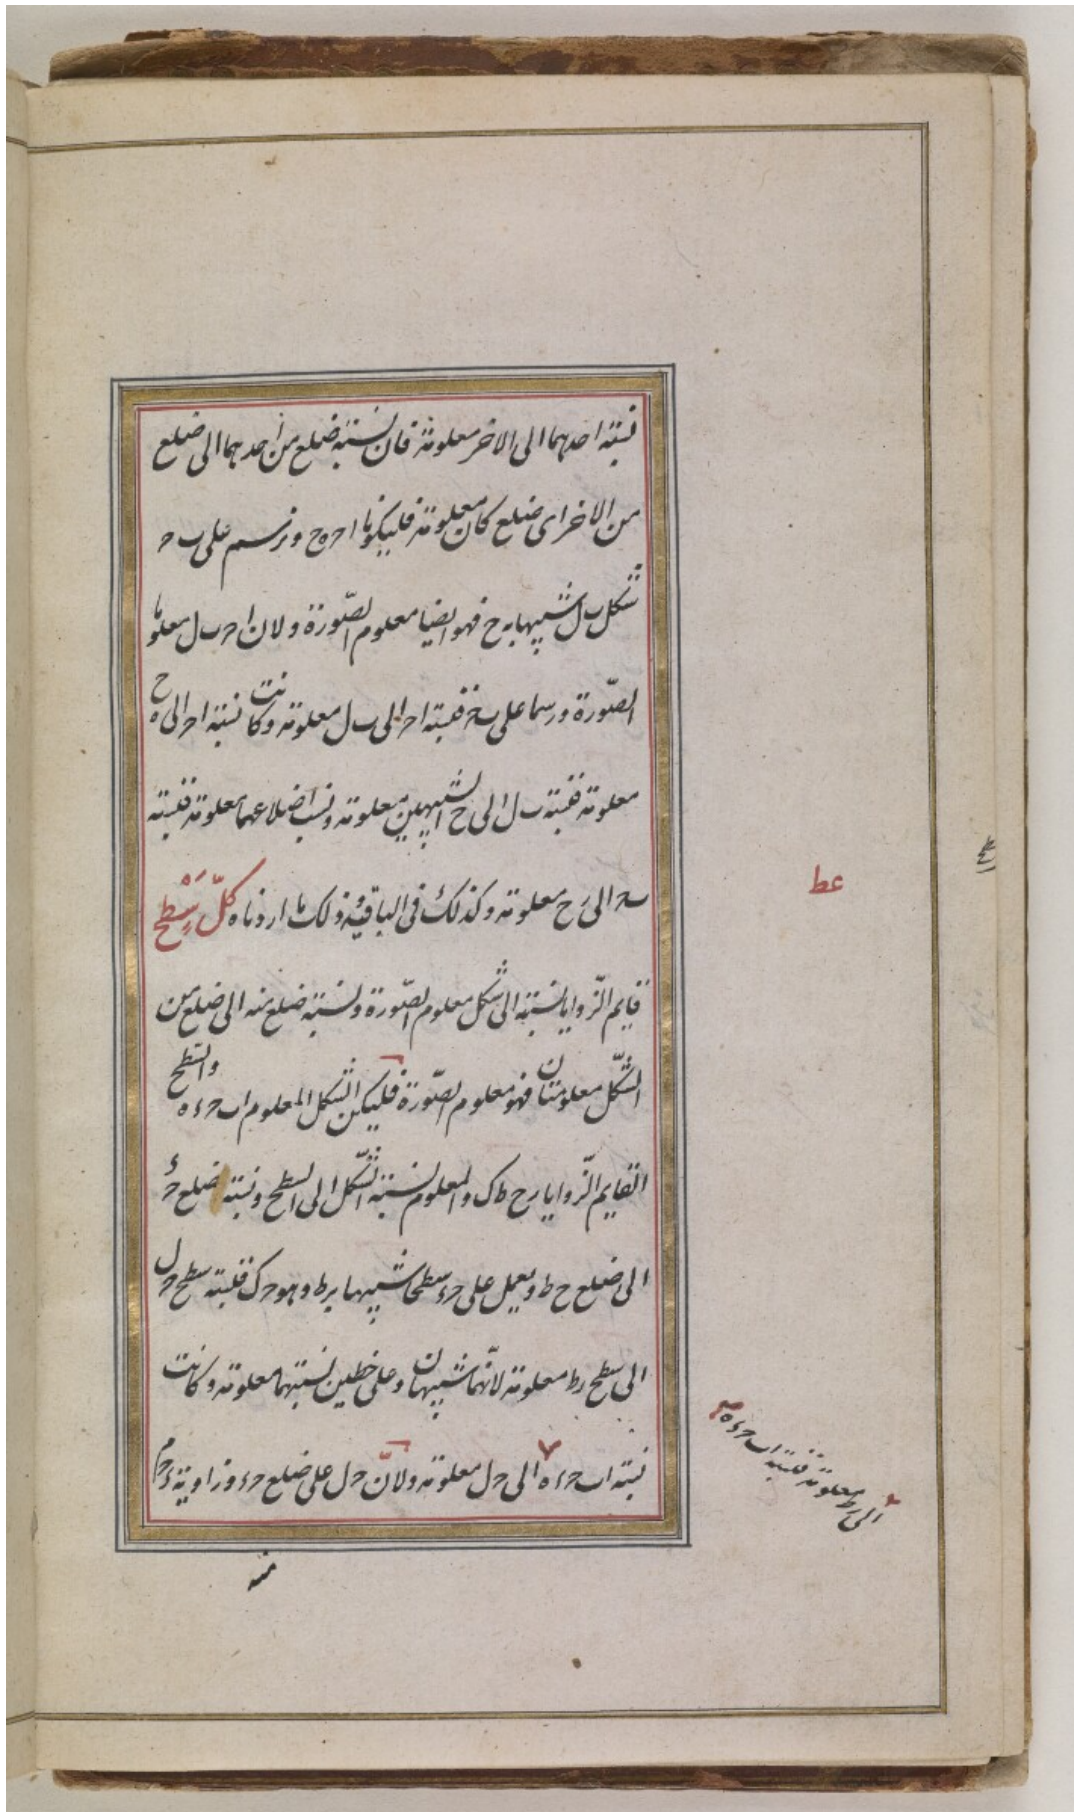 نسبة احدهما الى الاخر معلومة فان نسبة ضلع من احدهما الى ضلع
من الاخر اى ضلع كان معلومة فليكونا اح ه ح ونرسم على ب ح
شكل ب ل شبيها به ح فهو ايضا معلوم الصّورة ولان ا ح ب ل معلوما
الصّورة ورسما على ب ح فنسبة ا ح الى ب ل معلومة وكانت نسبة ا ح الى ه ح
معلومة فنسبة ب ل الى ه ح الشبيهين معلومة ونسب اضلاعهما معلومة فنسبة
ب ح الى ر ح معلومة وكذلك فى الباقية وذلك ما اردناه كلّ سَطح
قايم الزّوايا نسبته الى شكل معلوم الصّورة ونسبة ضلع منه الى ضلع من
الشّكل معلومتان فهو معلوم الصّورة فليكن الشكل المعلوم ا ب ح ء ه والسّطح
القايم الزّوايا ر ح ط ك والمعلوم نسبة الشّكل الى السّطح ونسبة ضلع ح ء
الى ضلع ح ط ويعمل على ح ء سطحا شبيها بر ط وهو ح ك فنسبة سطح ح ل
الى سطح ر ط معلومة لانّهما شبيهان وعلى خطين نسبتهما معلومة وكانت
نسبة ا ب ح ء ه الى ح ل معلومة ولانّ ح ل على ضلع ح ء وزاوية ء ح م
عط
معلومة فنسبة ا ب ح ء ه
الى ر ط